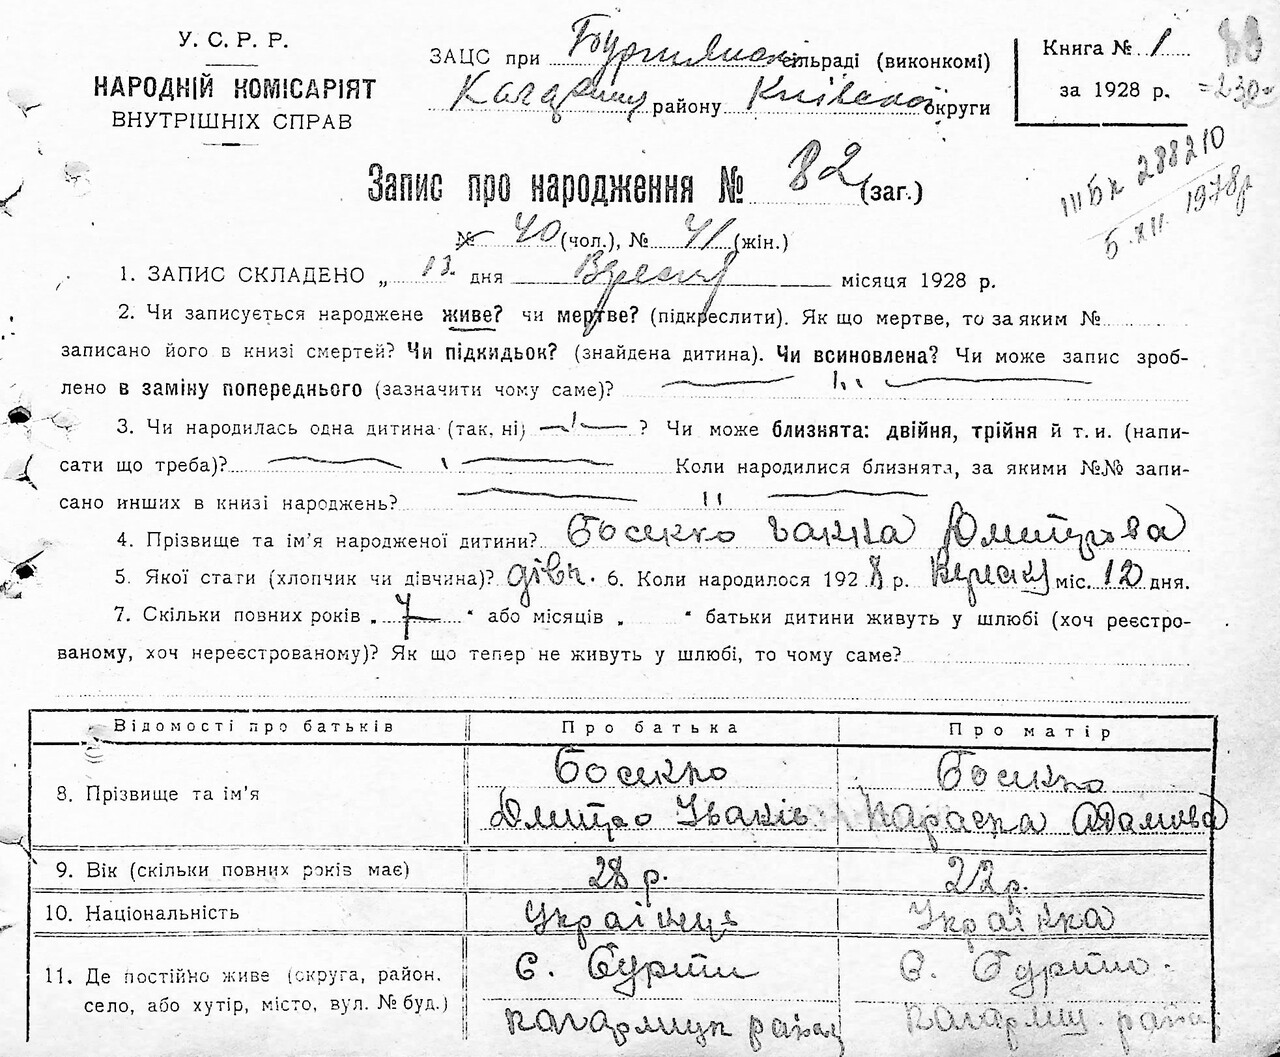 У. С. Р. Р.
НАРОДНІЙ КОМІСАРІЯТ
ВНУТРІШНІХ СПРАВ
ЗАЦС при сільраді (виконкомі)
району Київської округи
Книга № 1
за 1928 р.
ІІІ БК 288210
5.XII.1978р
Запис про народження № 82 (заг.)
№ 40 (чол.), № 41 (жін.)
1. ЗАПИС СКЛАДЕНО „ 12 дня Вересня місяця 1928 р.
2. Чи записується народжене живе? чи мертве? (підкреслити). Як що мертве, то за яким №
записано його в книзі смертей? Чи підкидьок? (знайдена дитина). Чи всиновлена? Чи може запис зроб-
лено в заміну попереднього (зазначити чому саме)?
3. Чи народилась одна дитина (так, ні) ? Чи може близнята: двійня, трійня й т. и. (напи-
сати що треба)? Коли народилися близнята, за якими №№ запи-
сано инших в книзі народжень?
4. Прізвище та ім'я народженої дитини? Босенко Ганна Дмитрова
5. Якої стати (хлопчик чи дівчина)? дівч. 6. Коли народилося 1928 р. Вересня міс. 12 дня.
7. Скільки повних років „ 7 " або місяців „ " батьки дитини живуть у шлюбі (хоч реєстро-
ваному, хоч нереєстрованому)? Як що тепер не живуть у шлюбі, то чому саме?
Відомості про батьків Про батька Про матір
8. Прізвище та ім'я Босенко Дмитро Іванів Босенко Параска Адамова
9. Вік (скільки повних років має) 28 р. 22 р.
10. Національність Українця Українка
11. Де постійно живе (округа, район, с. Бурти с. Бурти
село, або хутір, місто, вул. № буд.) Кагарлицк район Кагарлиц. район